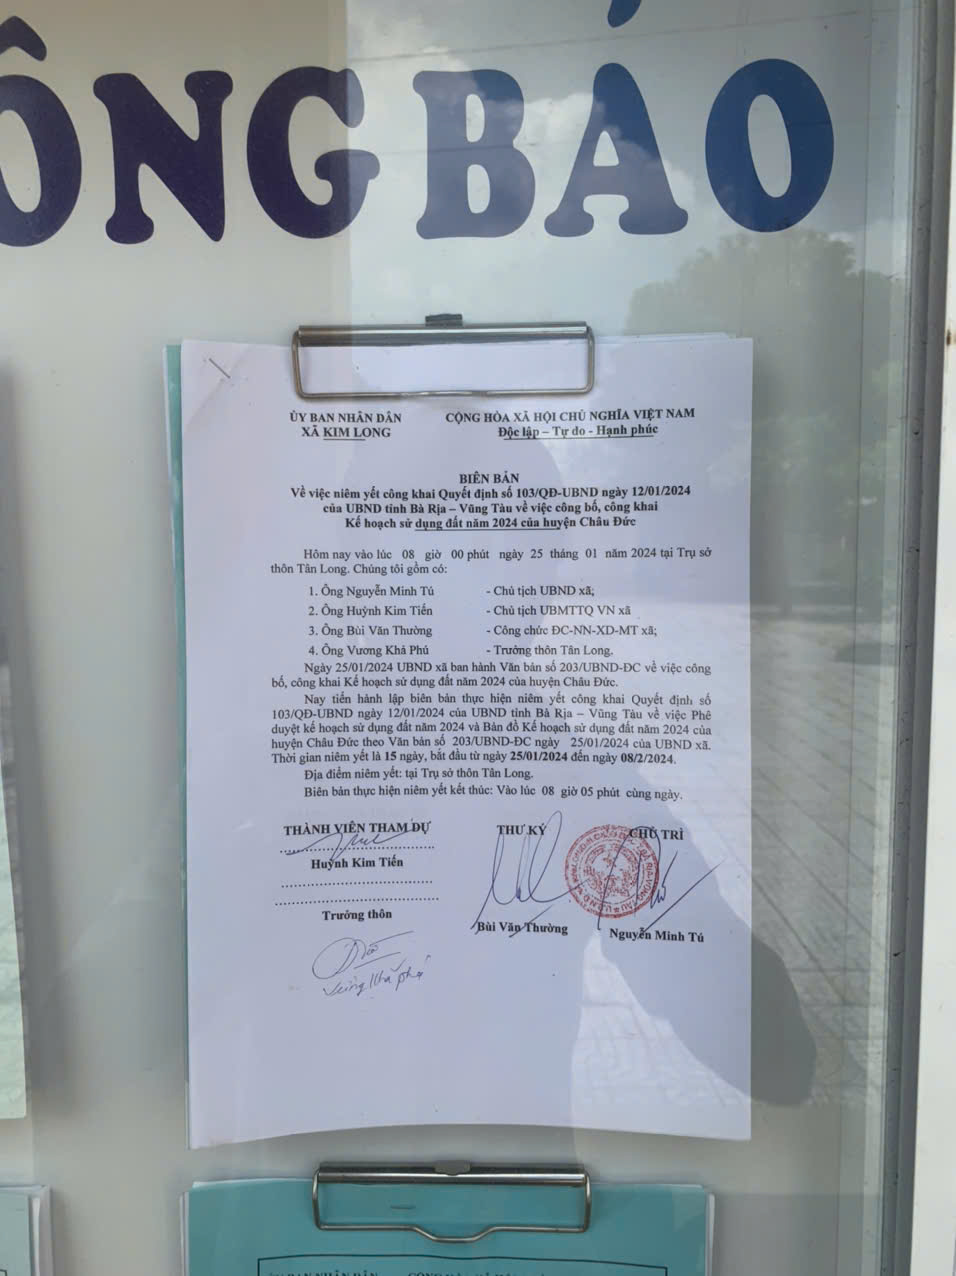 ÔNG BÁO
ỦY BAN NHÂN DÂN
XÃ KIM LONG
CỘNG HÒA XÃ HỘI CHỦ NGHĨA VIỆT NAM
Độc lập – Tự do - Hạnh phúc
BIÊN BẢN
Về việc niêm yết công khai Quyết định số 103/QĐ-UBND ngày 12/01/2024
của UBND tỉnh Bà Rịa – Vũng Tàu về việc công bố, công khai
Kế hoạch sử dụng đất năm 2024 của huyện Châu Đức
Hôm nay vào lúc 08 giờ 00 phút ngày 25 tháng 01 năm 2024 tại Trụ sở
thôn Tân Long. Chúng tôi gồm có:
1. Ông Nguyễn Minh Tú - Chủ tịch UBND xã;
2. Ông Huỳnh Kim Tiến - Chủ tịch UBMTTQ VN xã
3. Ông Bùi Văn Thường - Công chức ĐC-NN-XD-MT xã;
4. Ông Vương Khả Phú - Trưởng thôn Tân Long.
Ngày 25/01/2024 UBND xã ban hành Văn bản số 203/UBND-ĐC về việc công
bố, công khai Kế hoạch sử dụng đất năm 2024 của huyện Châu Đức.
Nay tiến hành lập biên bản thực hiện niêm yết công khai Quyết định số
103/QĐ-UBND ngày 12/01/2024 của UBND tỉnh Bà Rịa – Vũng Tàu về việc Phê
duyệt kế hoạch sử dụng đất năm 2024 và Bản đồ Kế hoạch sử dụng đất năm 2024 của
huyện Châu Đức theo Văn bản số 203/UBND-ĐC ngày 25/01/2024 của UBND xã.
Thời gian niêm yết là 15 ngày, bắt đầu từ ngày 25/01/2024 đến ngày 08/2/2024.
Địa điểm niêm yết: tại Trụ sở thôn Tân Long.
Biên bản thực hiện niêm yết kết thúc: Vào lúc 08 giờ 05 phút cùng ngày.
THÀNH VIÊN THAM DỰ THƯ KÝ CHỦ TRÌ
Huỳnh Kim Tiến
Trưởng thôn
Bùi Văn Thường Nguyễn Minh Tú
Vương Khả Phú